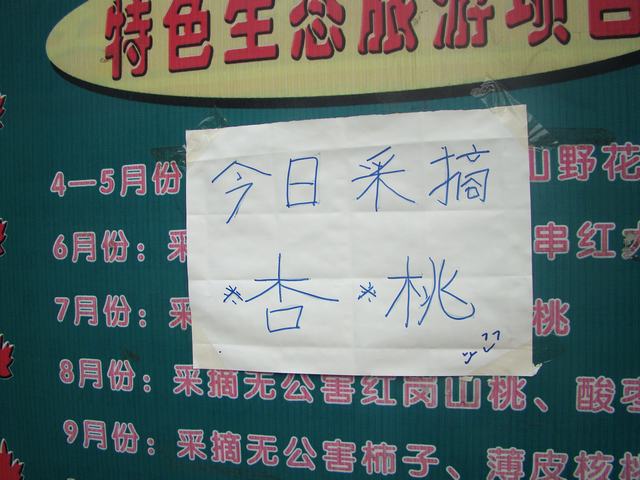 特色生态旅游项目
今日采摘
*杏 *桃
4—5月份
山野花
6月份：采
串红
7月份：采
桃
8月份：采摘无公害红岗山桃、酸枣
9月份：采摘无公害柿子、薄皮核桃